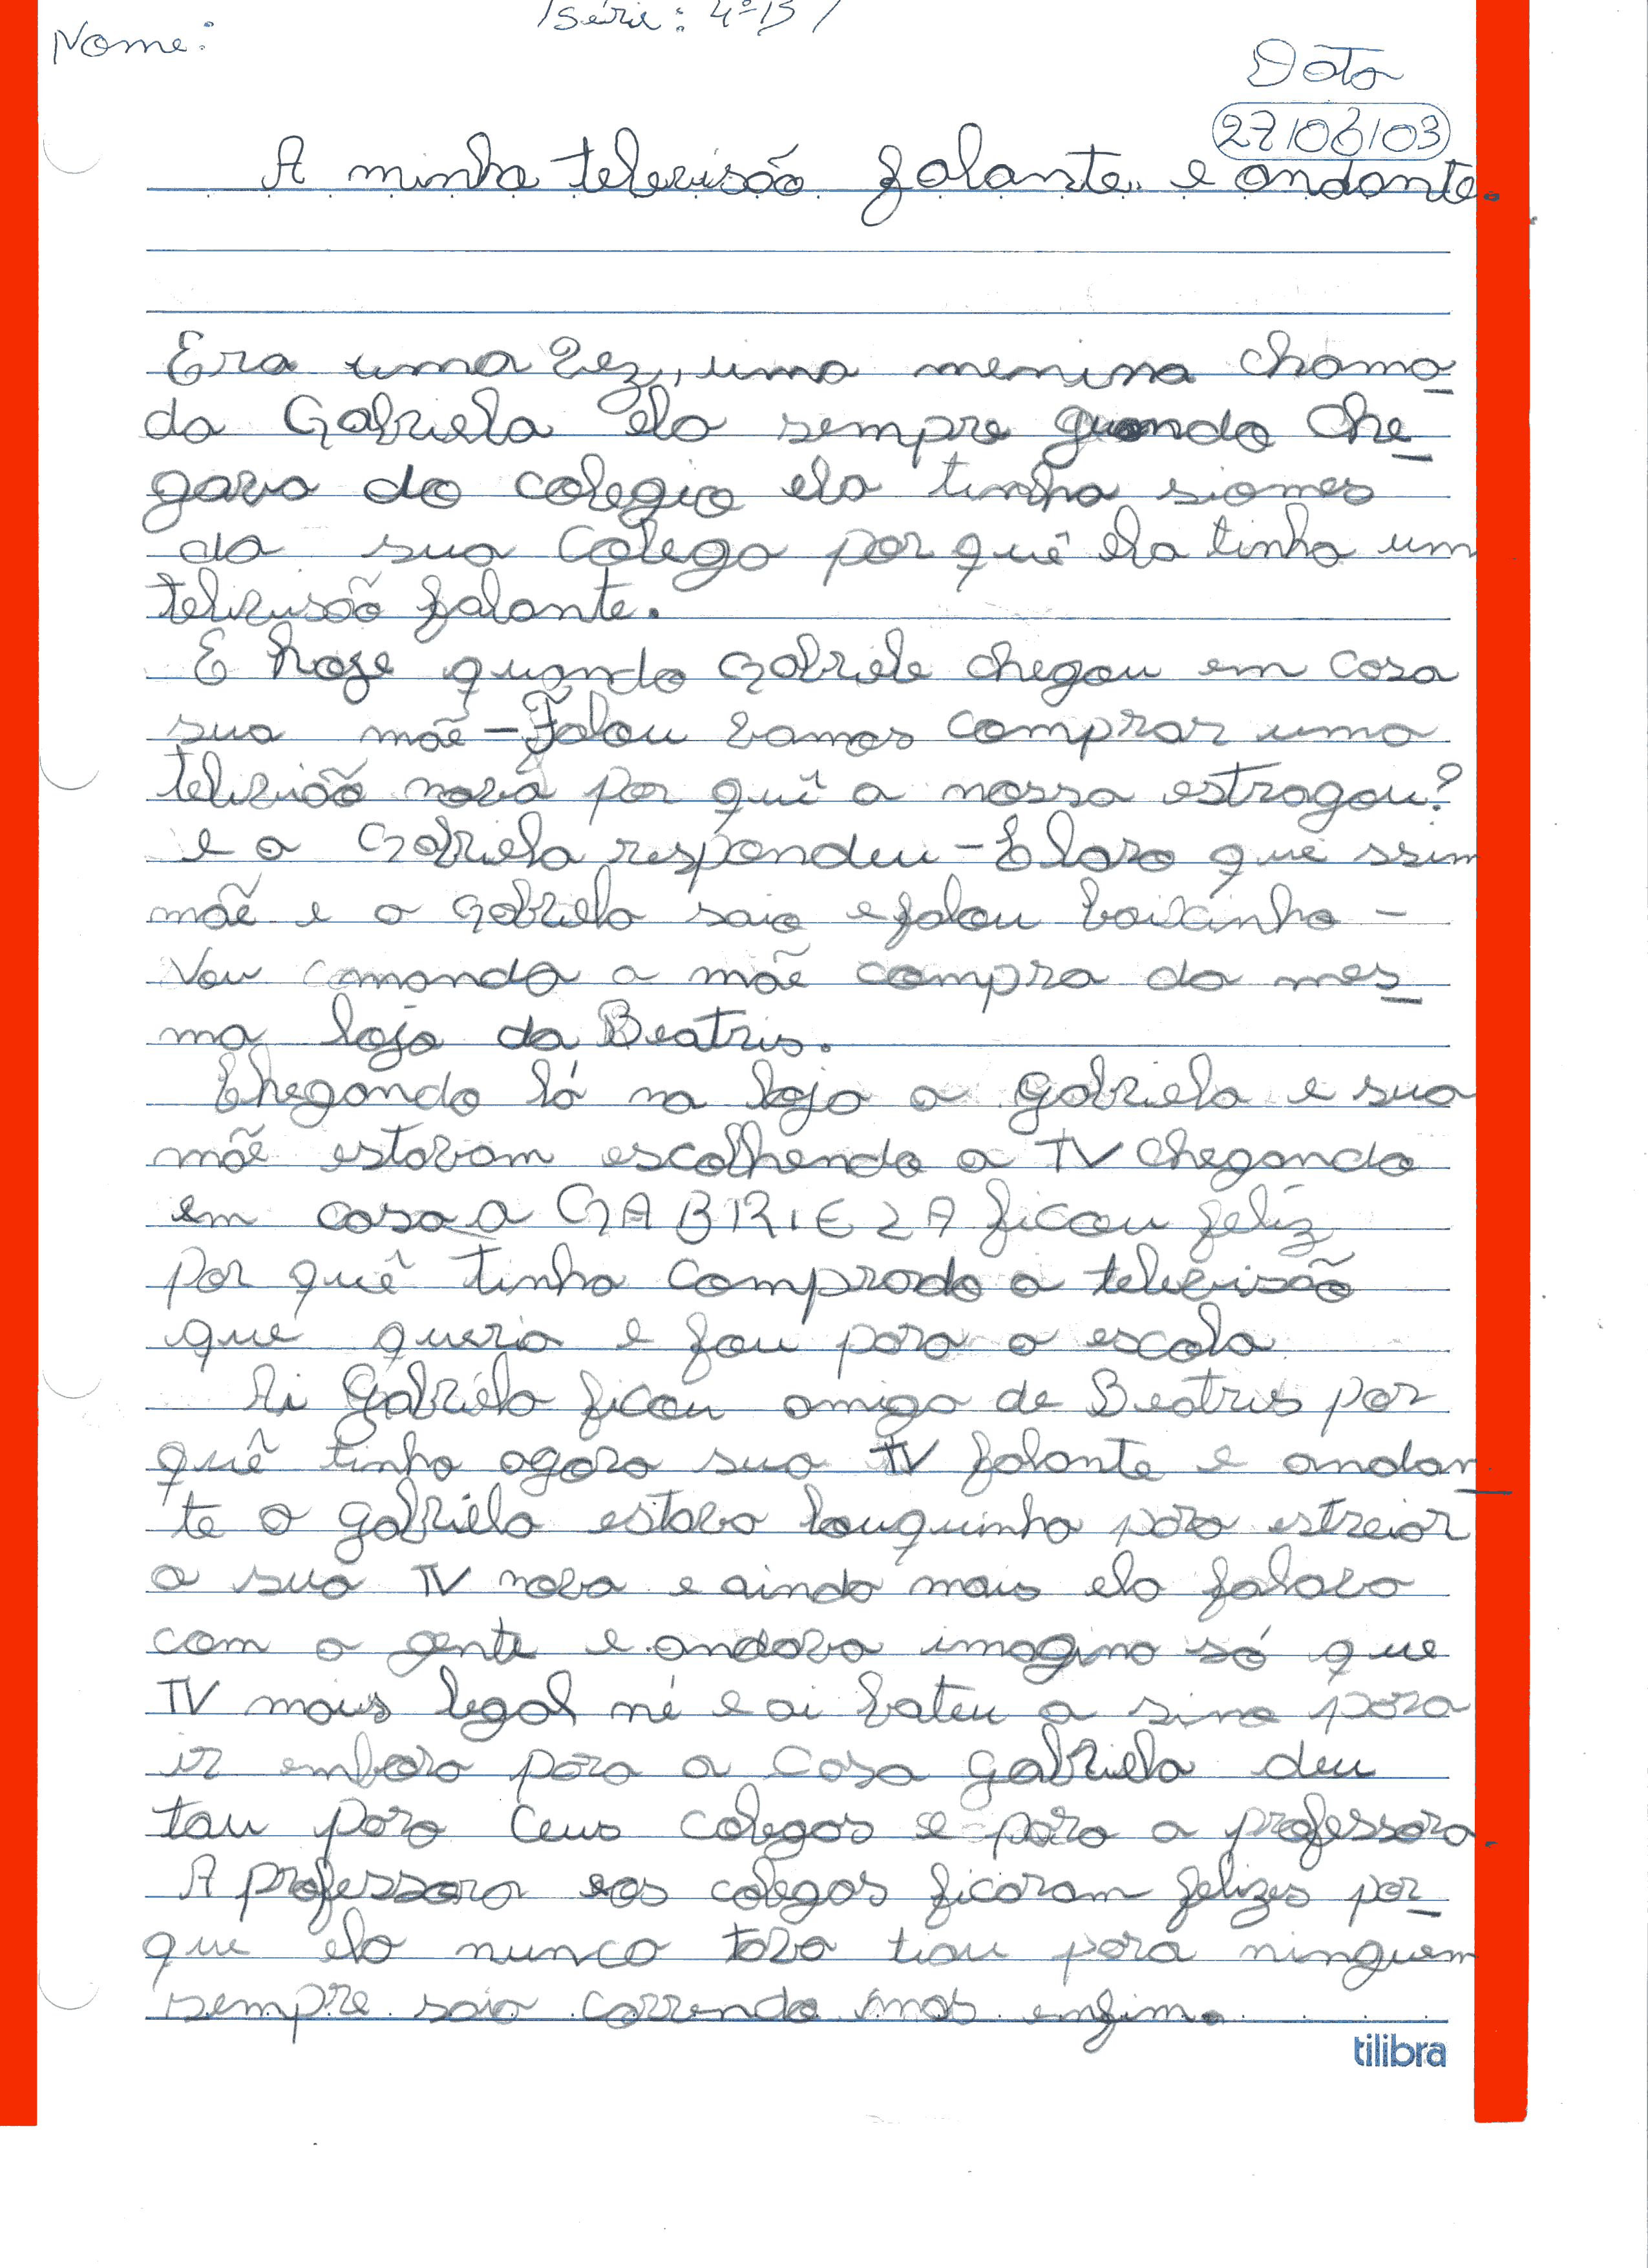 Nome: Série: 4ª B
Data
27/06/03
A minha televisão falante e andante.
Era uma vez, uma menina chama
da Gabriela ela sempre quando che
gava do colegio ela tinha siomes
da sua colega por quê ela tinha um
televisão falante.
E hoje quando Gabriele chegou em casa
sua mãe - Falou vamos comprar uma
televisão nova por quê a nossa estragou?
e a Gabriela respondeu - Claro que ssim
mãe e a Gabriela saio e falou baixinho -
Vou comanda a mãe compra da mes
ma loja da Beatris.
Chegando lá na loja a Gabriela e sua
mãe estavam escolhendo a TV chegando
em casa a GABRIELA ficou feliz
por quê tinha comprado a televisão
que queria e fou para a escola
Ai Gabriela ficou amiga de Beatris por
quê tinha agora sua TV falante e andan
te a Gabriela estava louquinha para estreiar
a sua TV nova e ainda mais ela falava
com a gente e andava imagina só que
TV mais legal né e ai bateu a sino para
ir embora para a casa Gabriela deu
tau para ceus colegas e para a professora.
A professora e os colegas ficaram felizes por
que ela nunca tava tiau para ninguem
sempre saia correndo mas enfim.
tilibra